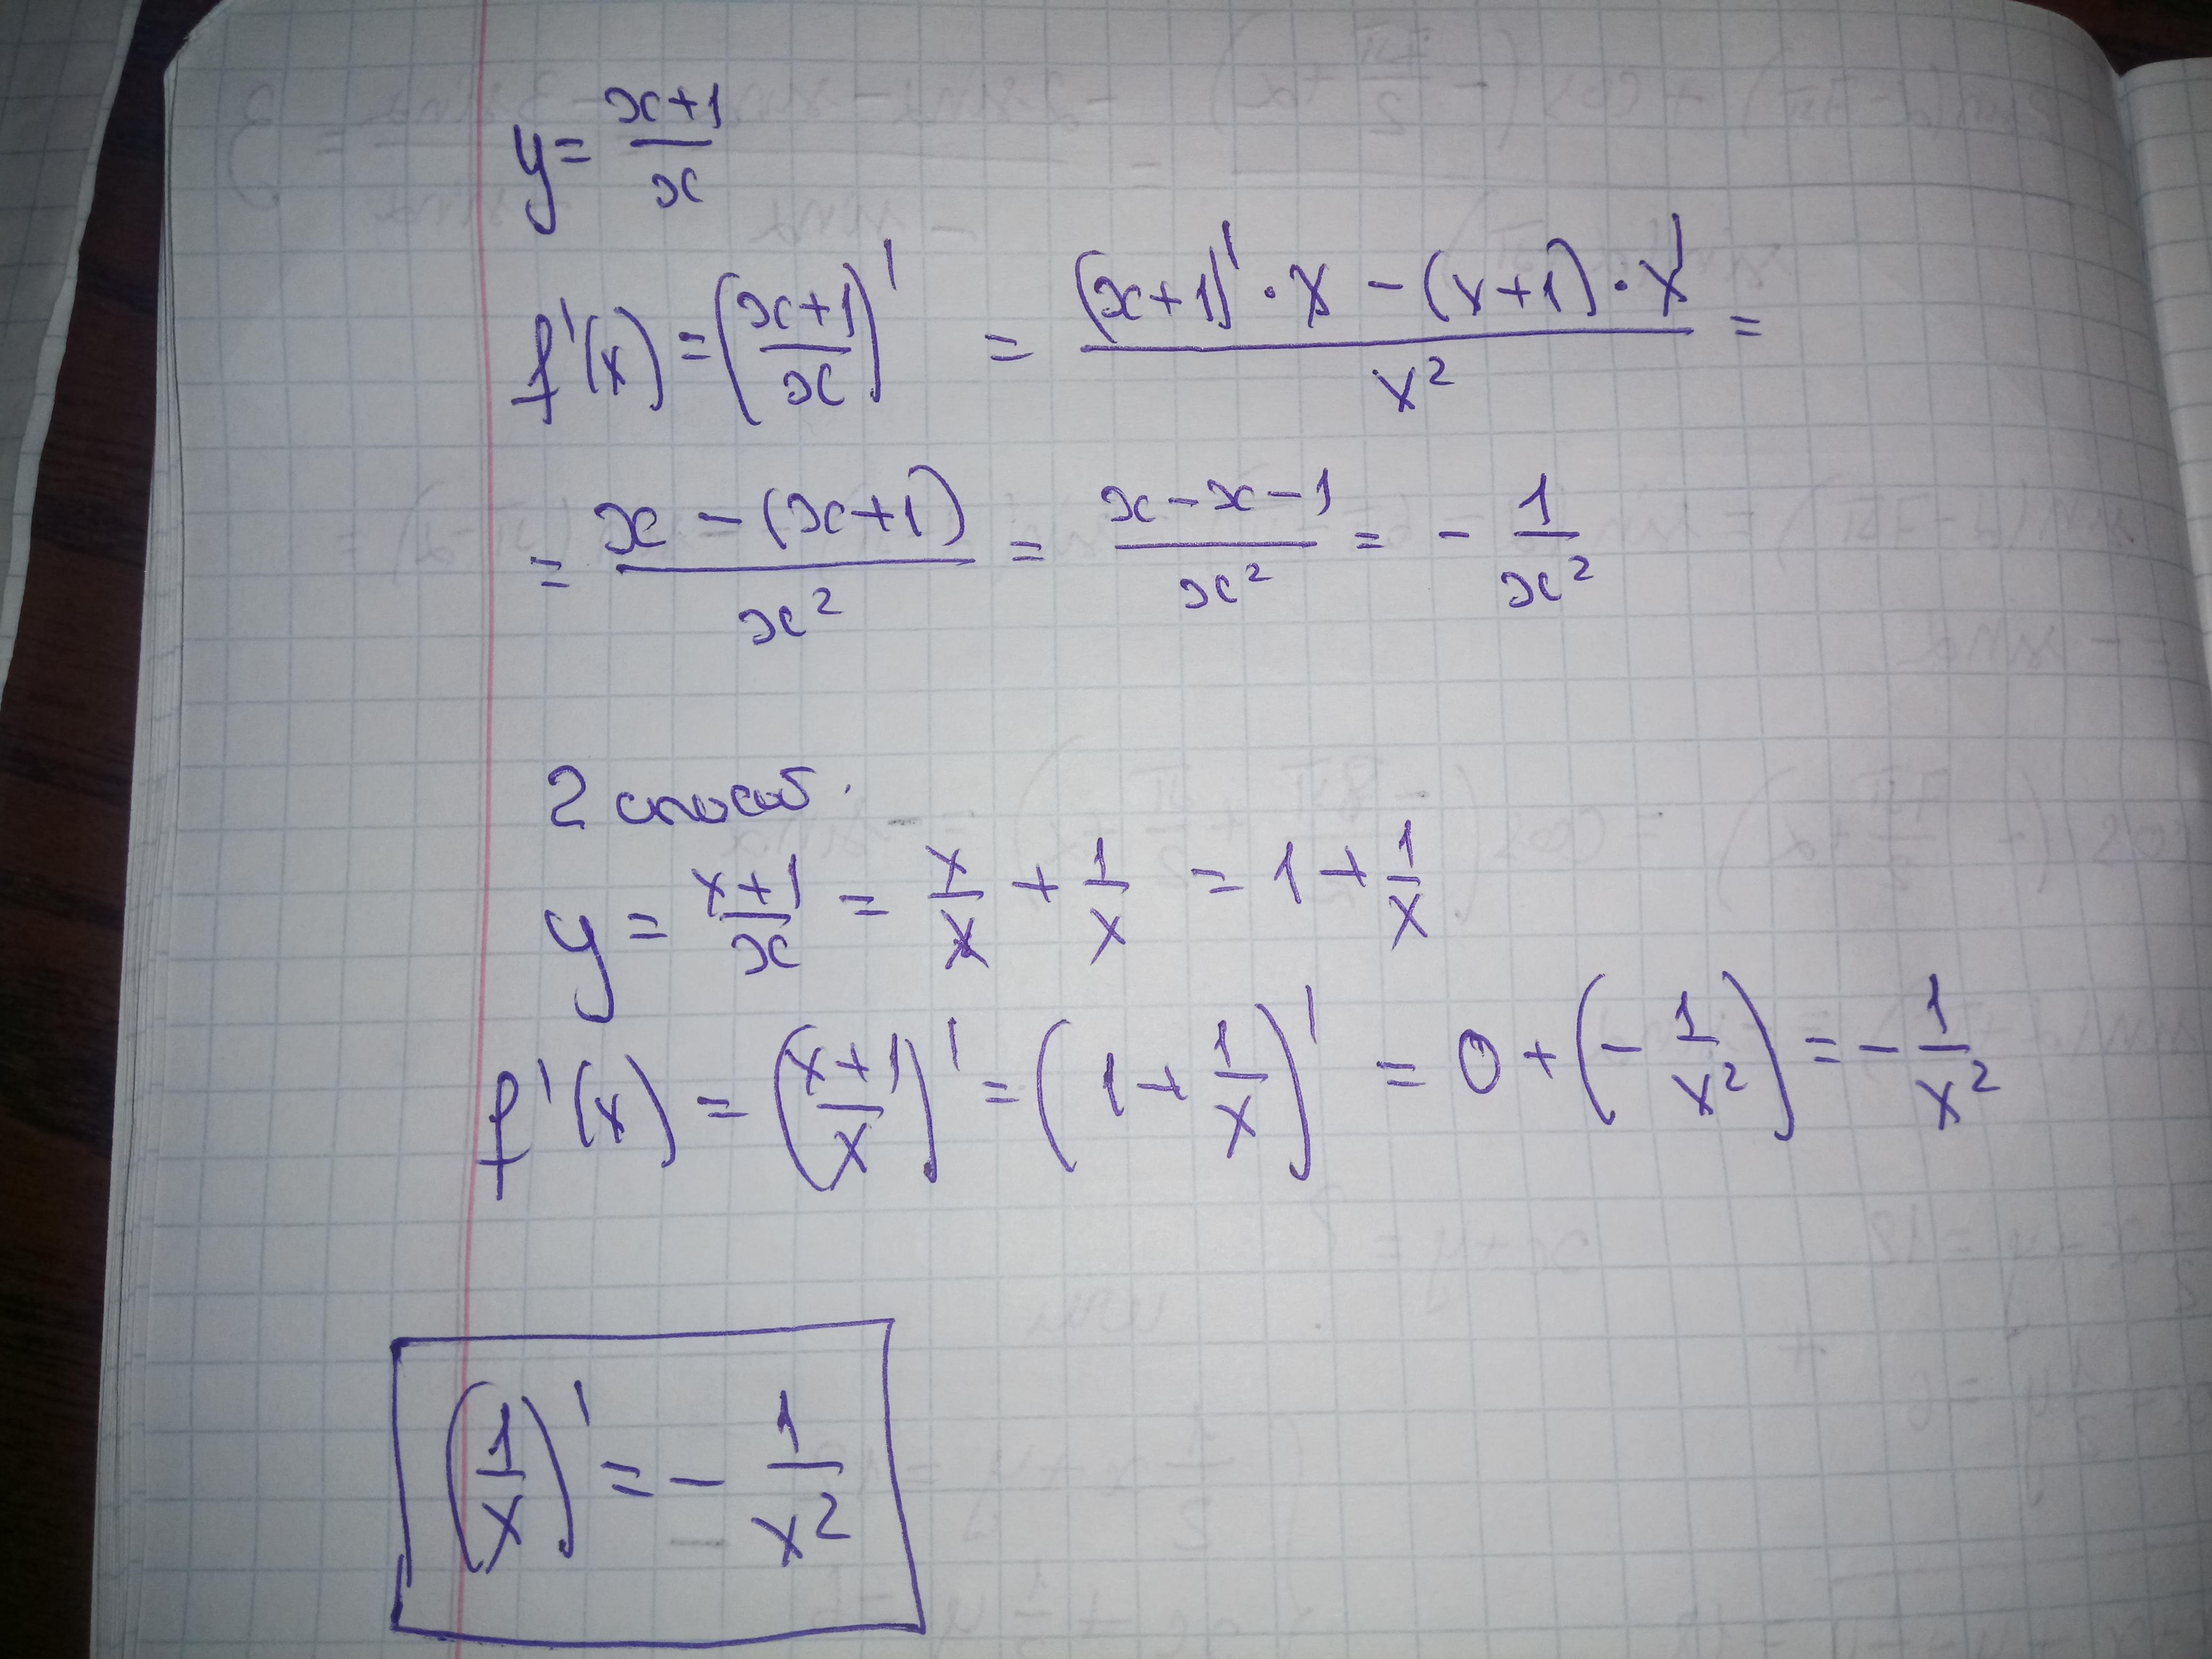 y = \frac{x+1}{x}
f'(x) = \left(\frac{x+1}{x}\right)' = \frac{(x+1)' \cdot x - (x+1) \cdot x'}{x^2} =
= \frac{x - (x+1)}{x^2} = \frac{x-x-1}{x^2} = -\frac{1}{x^2}
2 способ.
y = \frac{x+1}{x} = \frac{x}{x} + \frac{1}{x} = 1 + \frac{1}{x}
f'(x) = \left(\frac{x+1}{x}\right)' = \left(1 + \frac{1}{x}\right)' = 0 + \left(-\frac{1}{x^2}\right) = -\frac{1}{x^2}
\left(\frac{1}{x}\right)' = -\frac{1}{x^2}